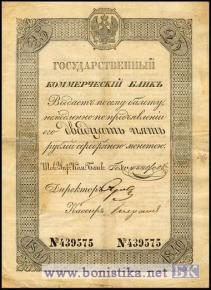 25 25
ГОСУДАРСТВЕННЫЙ
КОММЕРЧЕСКІЙ БАНКЪ
Выдаетъ по сему билету
немедленно по предъявленіи
его Двадцать пять
рублей серебряною монетою.
Директоръ
Кассиръ
№439575 №439575
1840 1840
www.bonistika.net БК